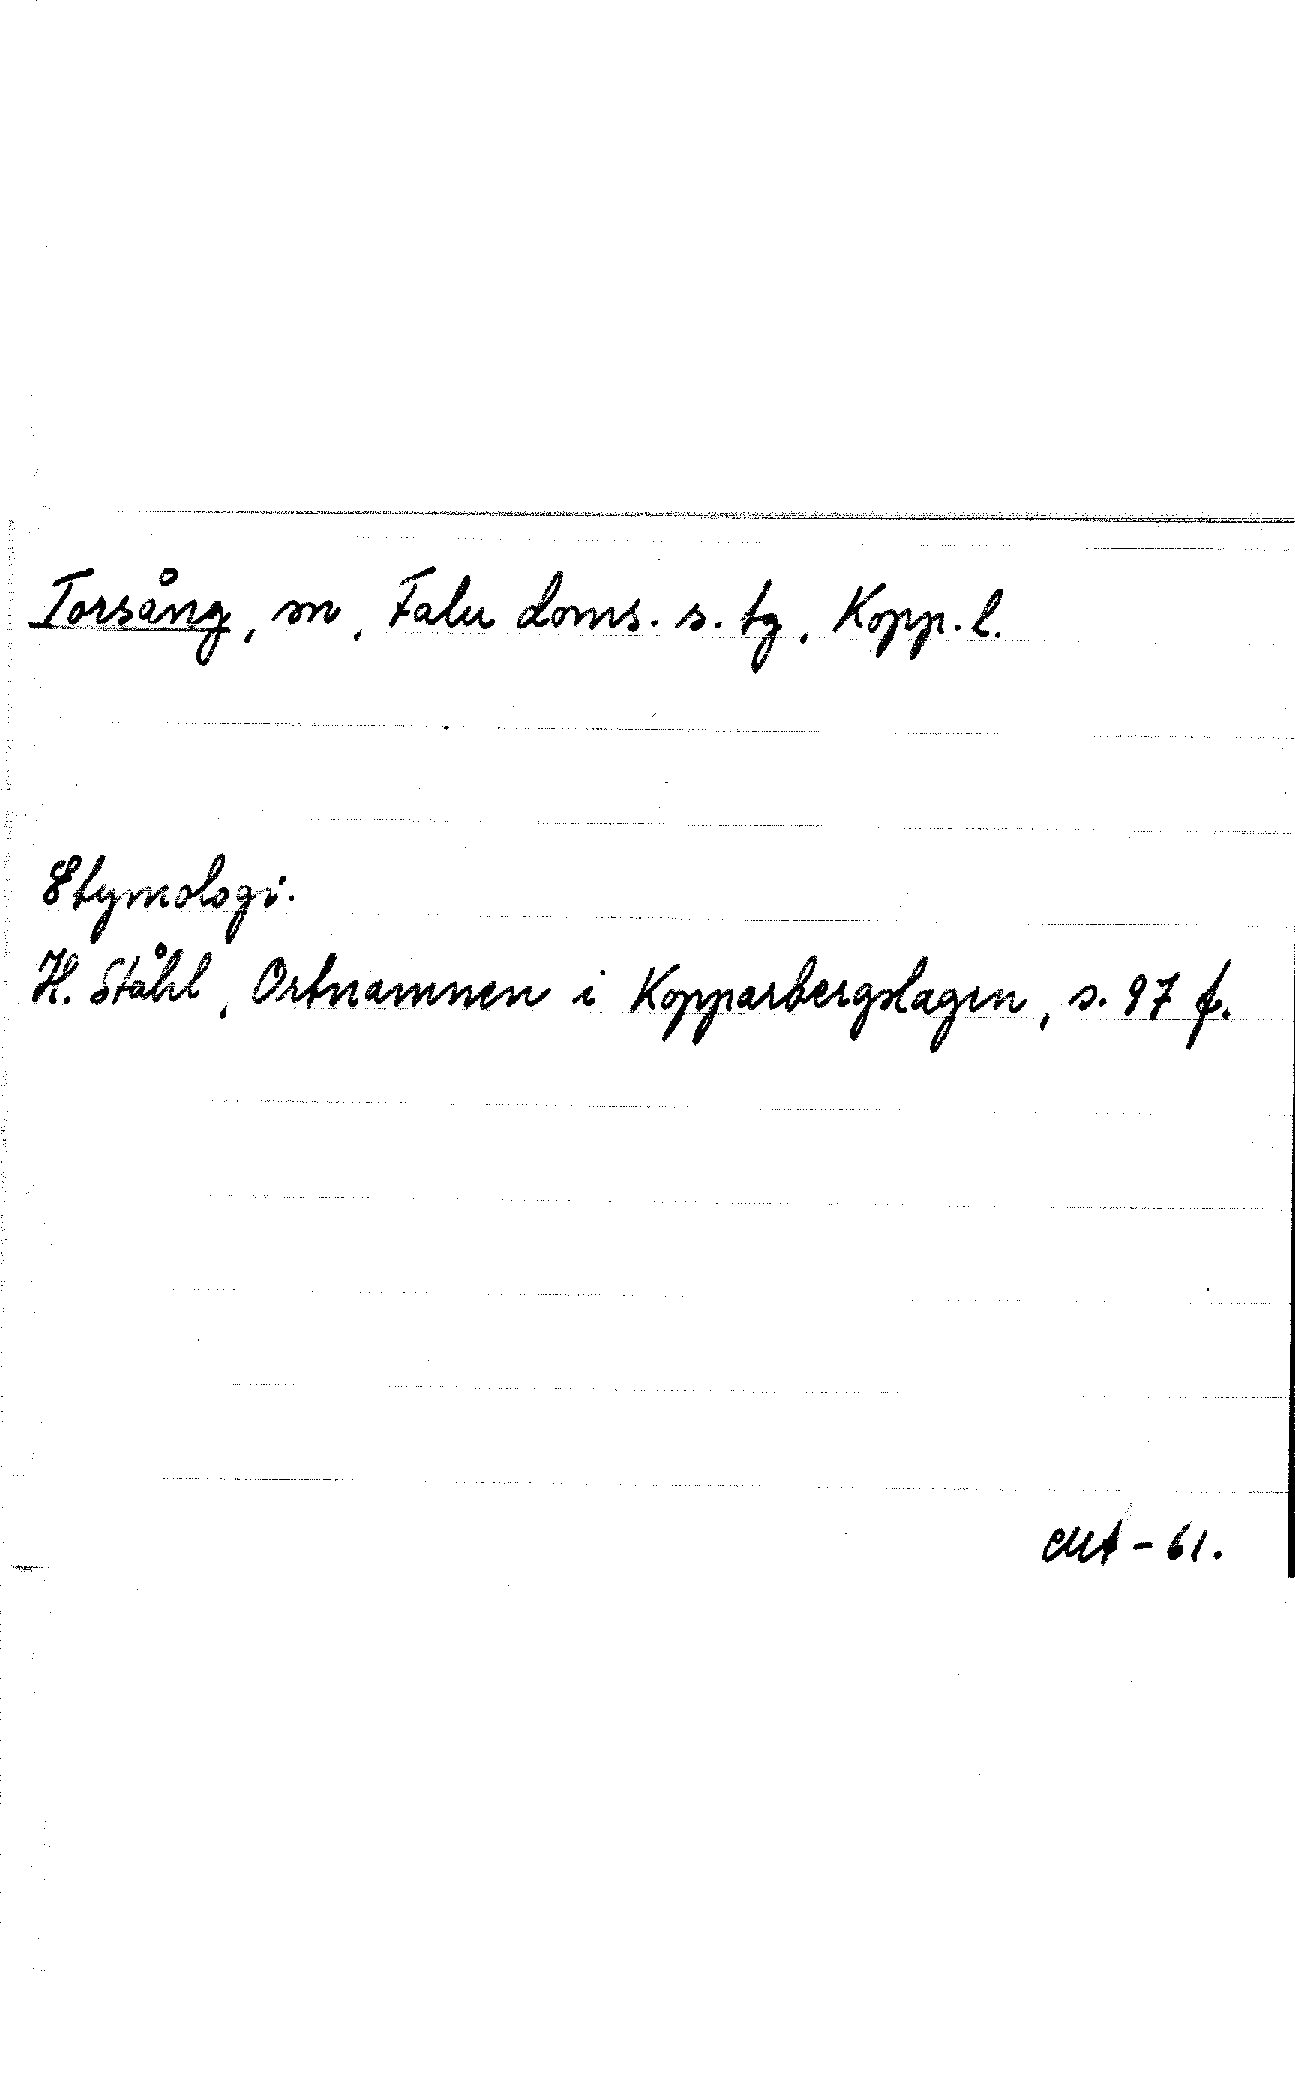 Torsång, sn, Falu doms. s. tg, Kopp. l.
Etymologi.
H. Ståhl, Ortnamnen i Kopparbergslagen, s. 97 f.
-61.